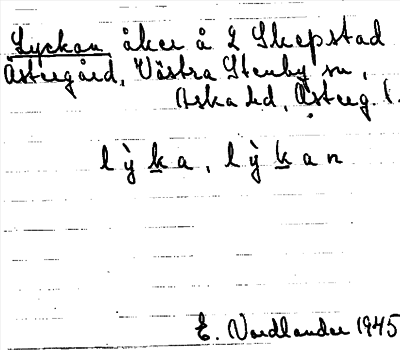 Lyckan åker å 2 Skepstad
Östergård, Västra Stenby sn,
Aska hd, Österg. l.
lỳk̲a, lỳk̲an
E. Nordlander 1945